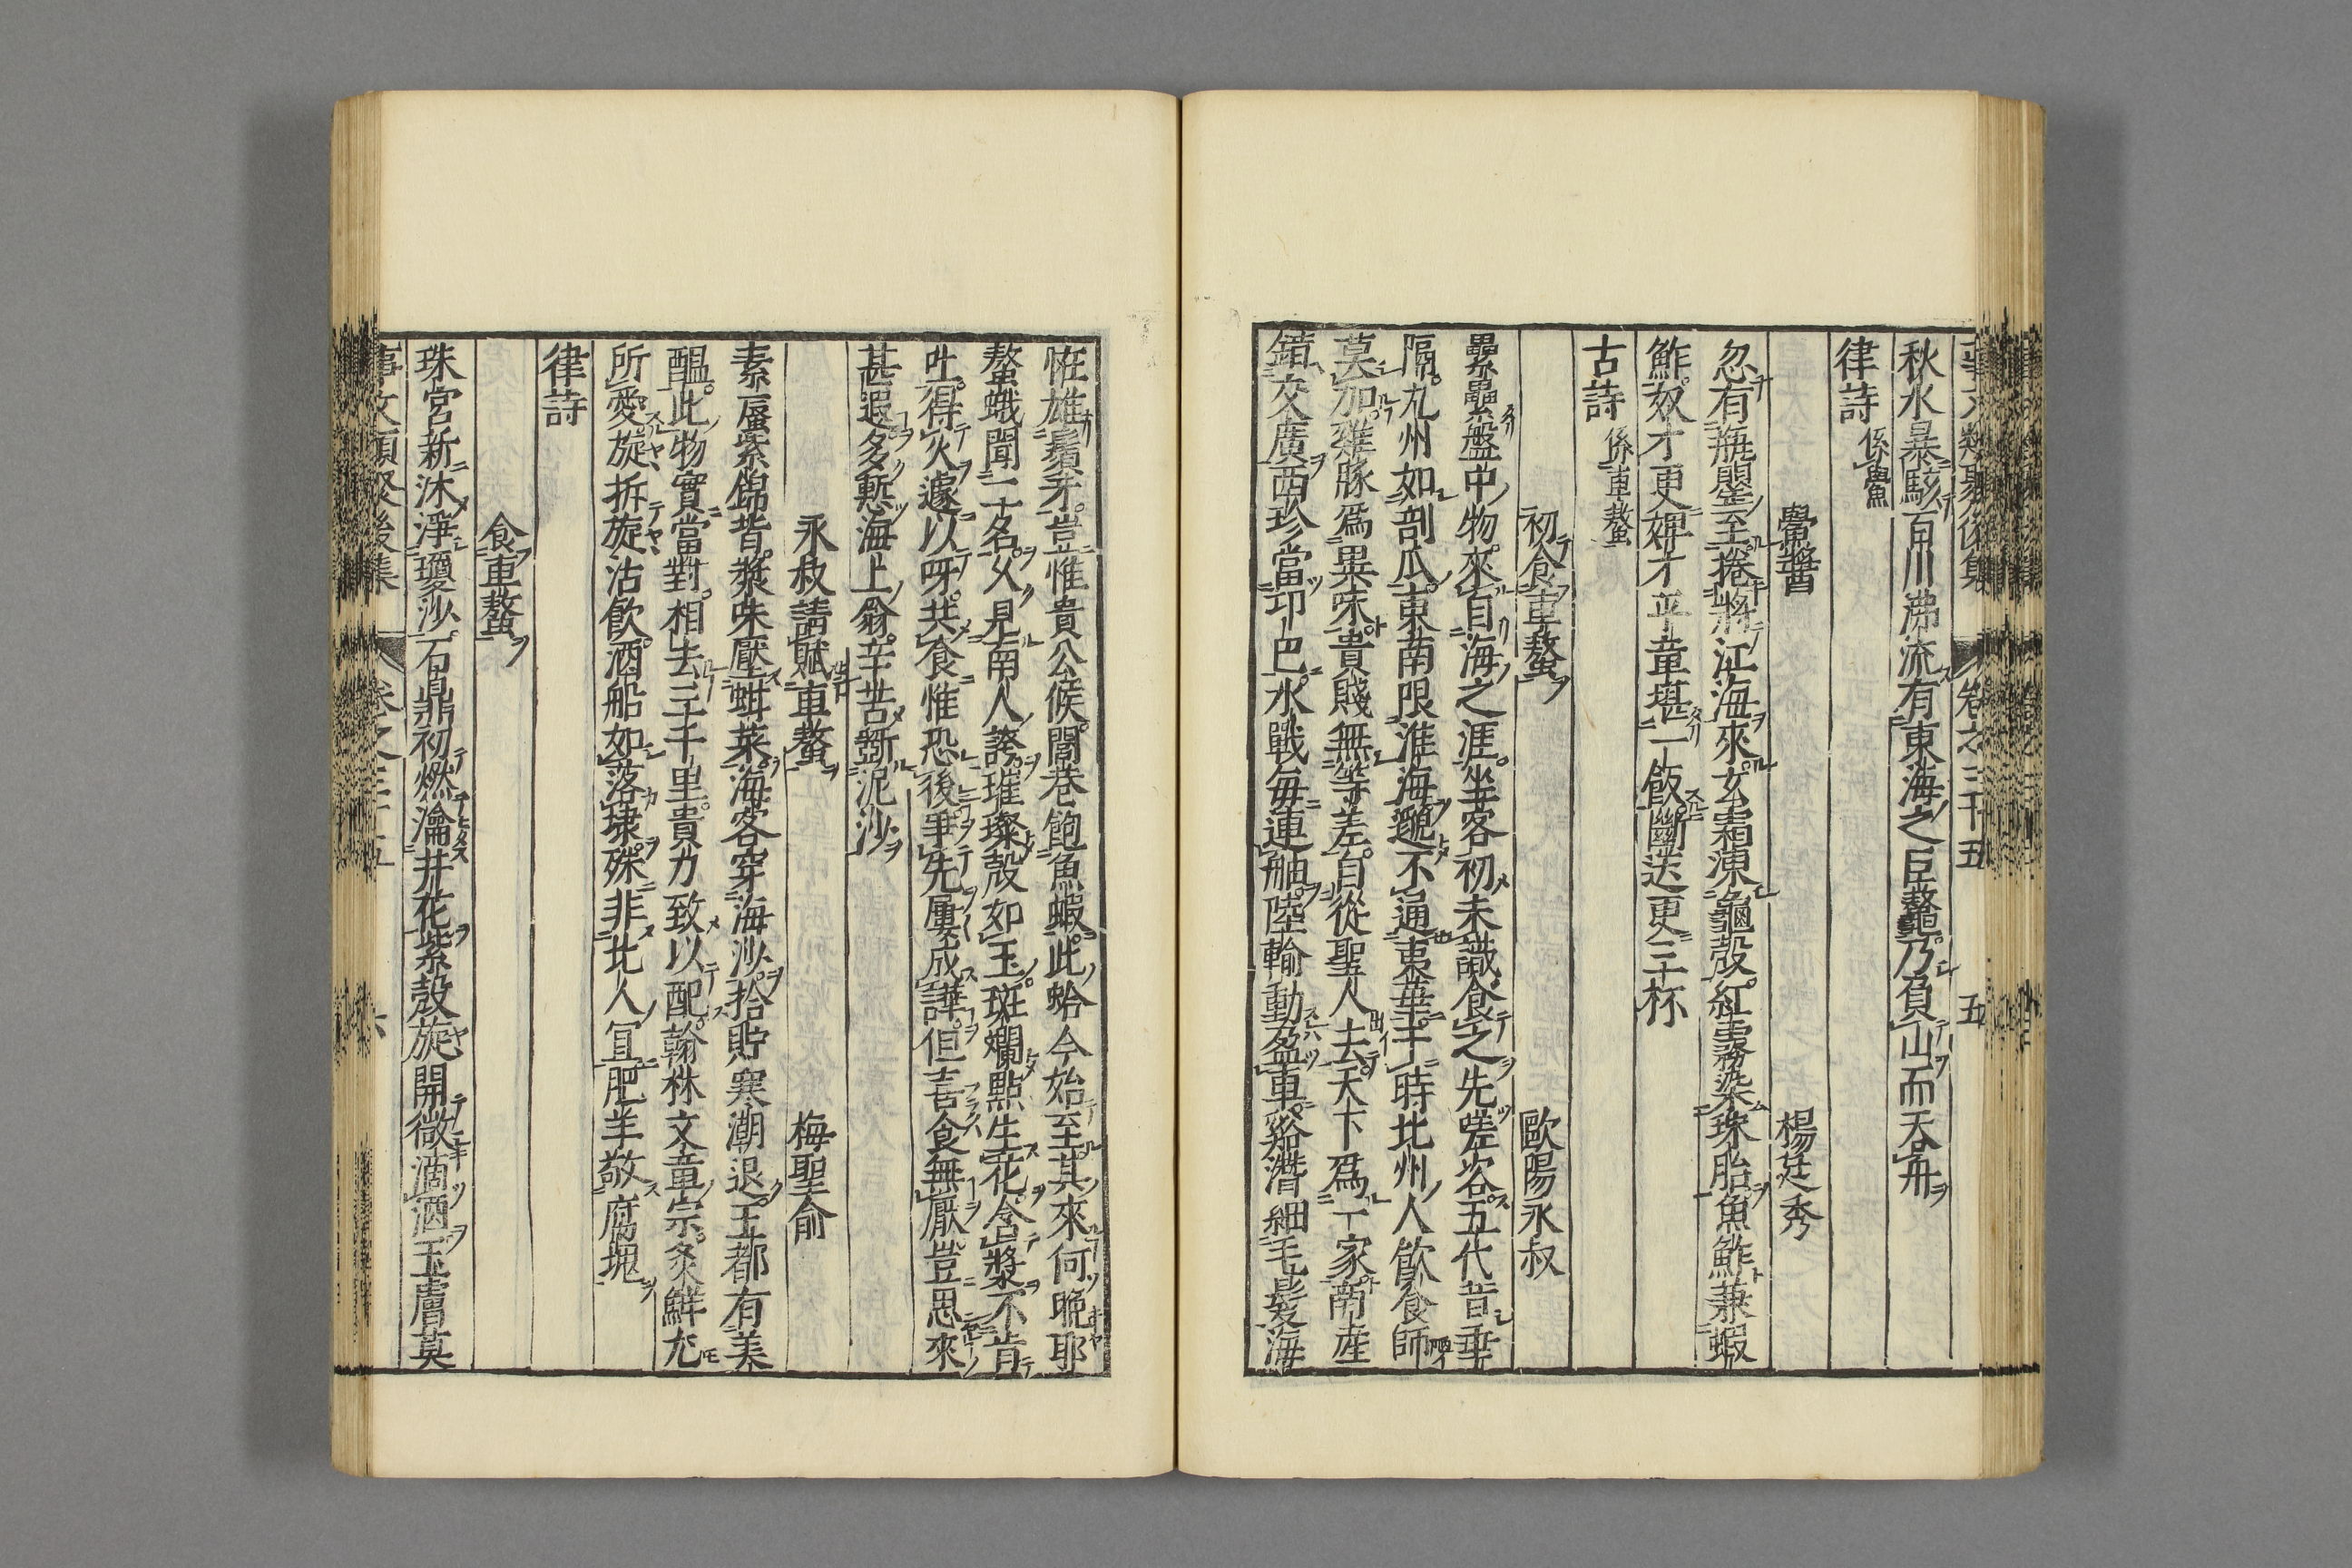 秋水暴駭百川沸流有東海之臣鼇乃負山而天舟
律詩 係鱟
鱟醬 楊廷秀
忽有瓶罌至捲將江海來玄霜凍龜殻紅霧染珠胎魚鮓兼蝦
鮓奴才更婢才平章堪一飯斷送更三杯
古詩 係車螯
初食車螯 歐陽永叔
纍纍盤中物來自海之涯坐客初未識食之先嗟咨五代昔乖
隔九州如剖瓜東南限淮海邈不通夷華于時北州人飲食師
莫加雞豚爲異味貴賤無等差自從聖人去天下爲一家南産
錯交廣西珍當卭巴水戰毎連舳陸輸動盈車谿潛細毛髮海
恠雄鬚牙豈惟貴公侯閭巷飽魚蝦此蛤今始至其來何晩耶
螯蛾聞二名久見南人誇璀璨殻如玉斑斕點生花含漿不肯
吐得火遽以呀共食惟恐後爭先屢成譁但喜食無厭豈思來
甚遐多慙海上翁辛苦斵泥沙
永叔請賦車螯 梅聖俞
素唇紫錦背漿味壓蚶菜海客穿海沙拾貯寒潮退王都有美
醖此物實當對相去三千里貴力致以配翰林文章宗炙鮮尤
所愛旋拆旋沽飲酒船如落埭殊非北人冝肥羊敬腐塊
律詩
食車螯
珠宮新沐淨瓊沙石鼎初燃瀹井花紫殻旋開微滴酒玉膚莫
事文類聚後集 卷之三十五 六